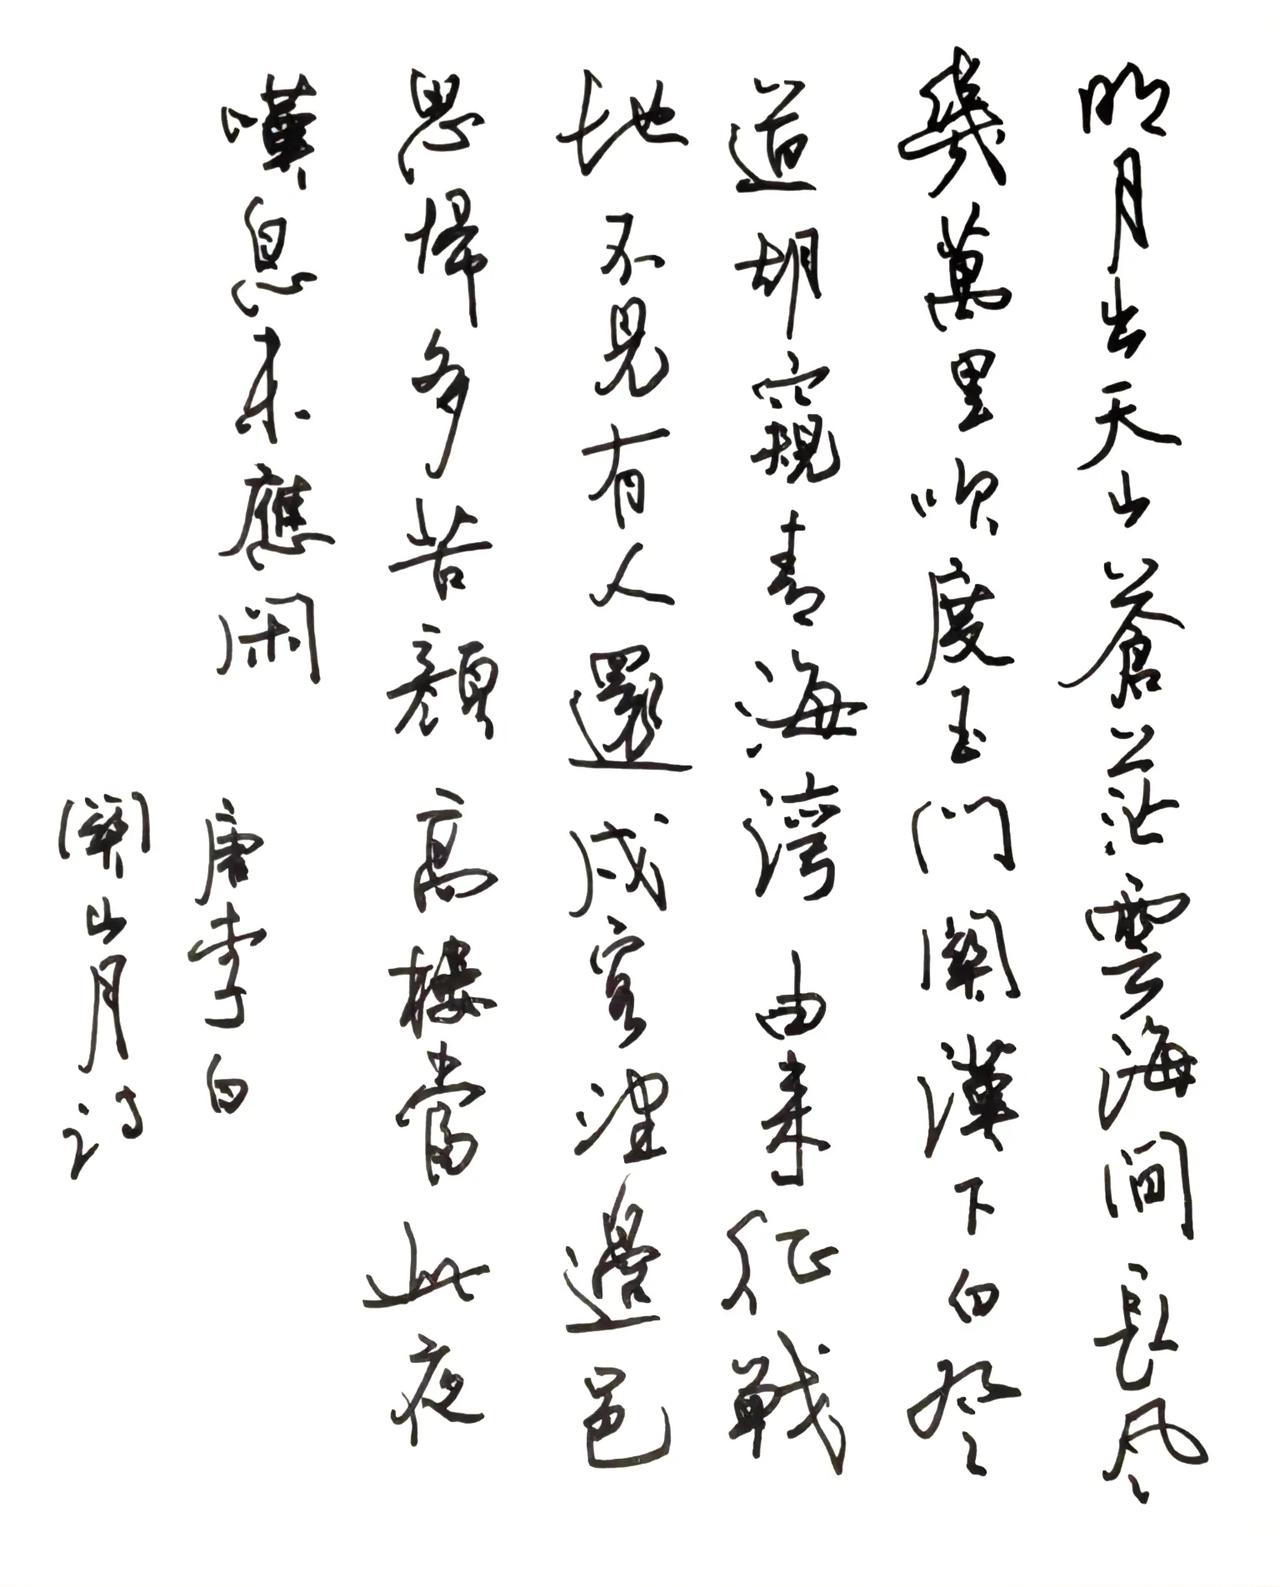 明月出天山蒼茫雲海間長風
幾萬里吹度玉門關漢下白登
道胡窺青海灣由来征戰
地不見有人還戍客望邊邑
思歸多苦顏高樓當此夜
嘆息未應闲
唐李白
關山月诗